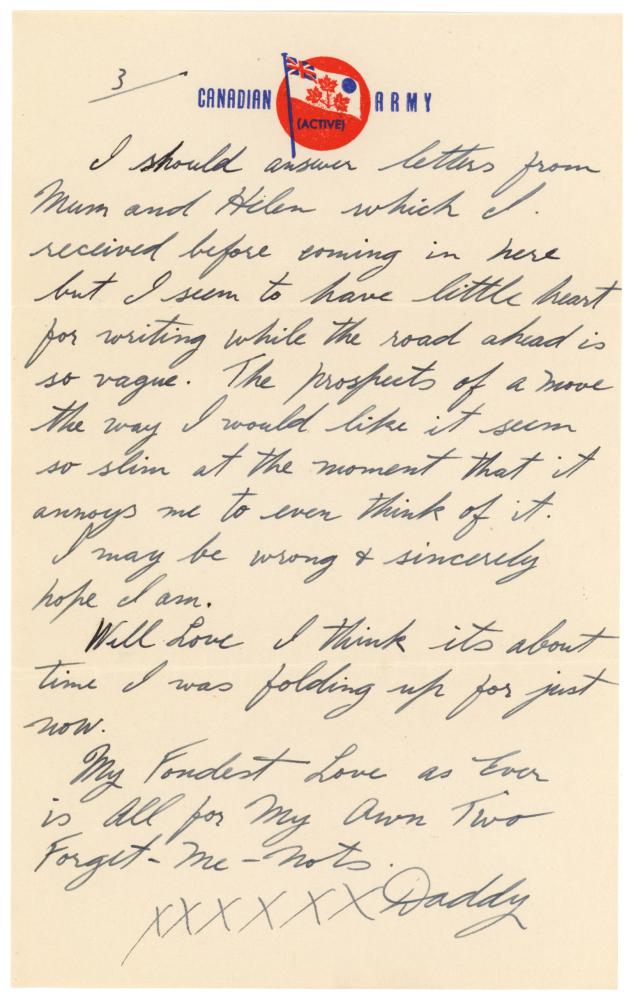 3
CANADIAN ARMY
(ACTIVE)
I should answer letters from
Mum and Hilen which I
received before coming in here
but I seem to have little heart
for writing while the road ahead is
so vague. The prospects of a move
the way I would like it seem
so slim at the moment that it
annoys me to even think of it.
I may be wrong & sincerely
hope I am.
Well Love I think its about
time I was folding up for just
now.
My Fondest Love as Ever
is All for My Own Two
Forget-Me-Nots.
XXXXXX Daddy